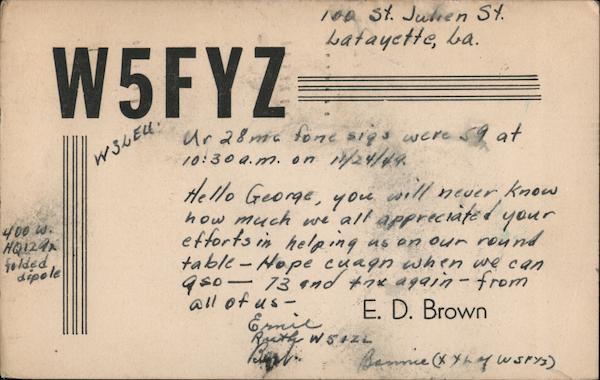 100 St. Julien St.
Lafayette, La.
W5FYZ
W3LEU.
Ur 28mc fone sigs were 59 at
10:30 a.m. on 11/24/49.
Hello George, you will never know
how much we all appreciated your
efforts in helping us on our round
table — Hope cuagn when we can
qso — 73 and tnx again — from
all of us —
400 w.
HQ129x
folded
dipole
E. D. Brown
Ernie
Ruth
Bennie (XYL of W5FYZ)